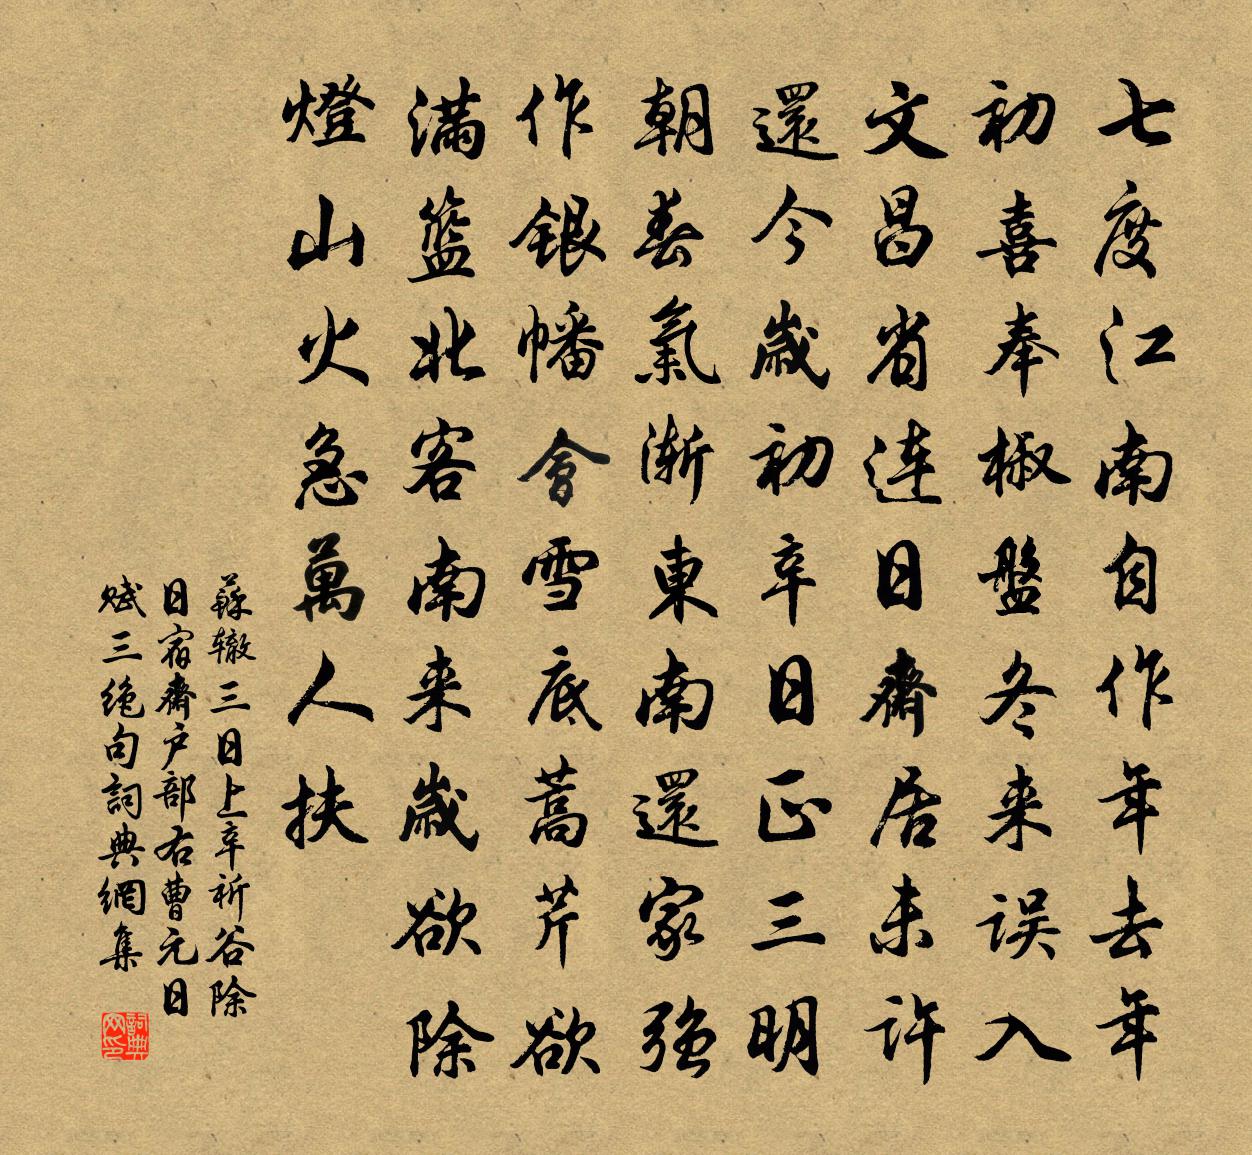 七度江南自作年去年
初喜奉椒盤冬来误入
文昌省连日齋居未许
還今歲初辛日正三明
朝春氣渐東南還家强
作銀幡會雪底蒿芹欲
滿籃北客南来歲欲除
燈山火急萬人扶
蘇辙三日上辛祈谷除
日宿齋户部右曹元日
赋三绝句詞典網集
詞典网印